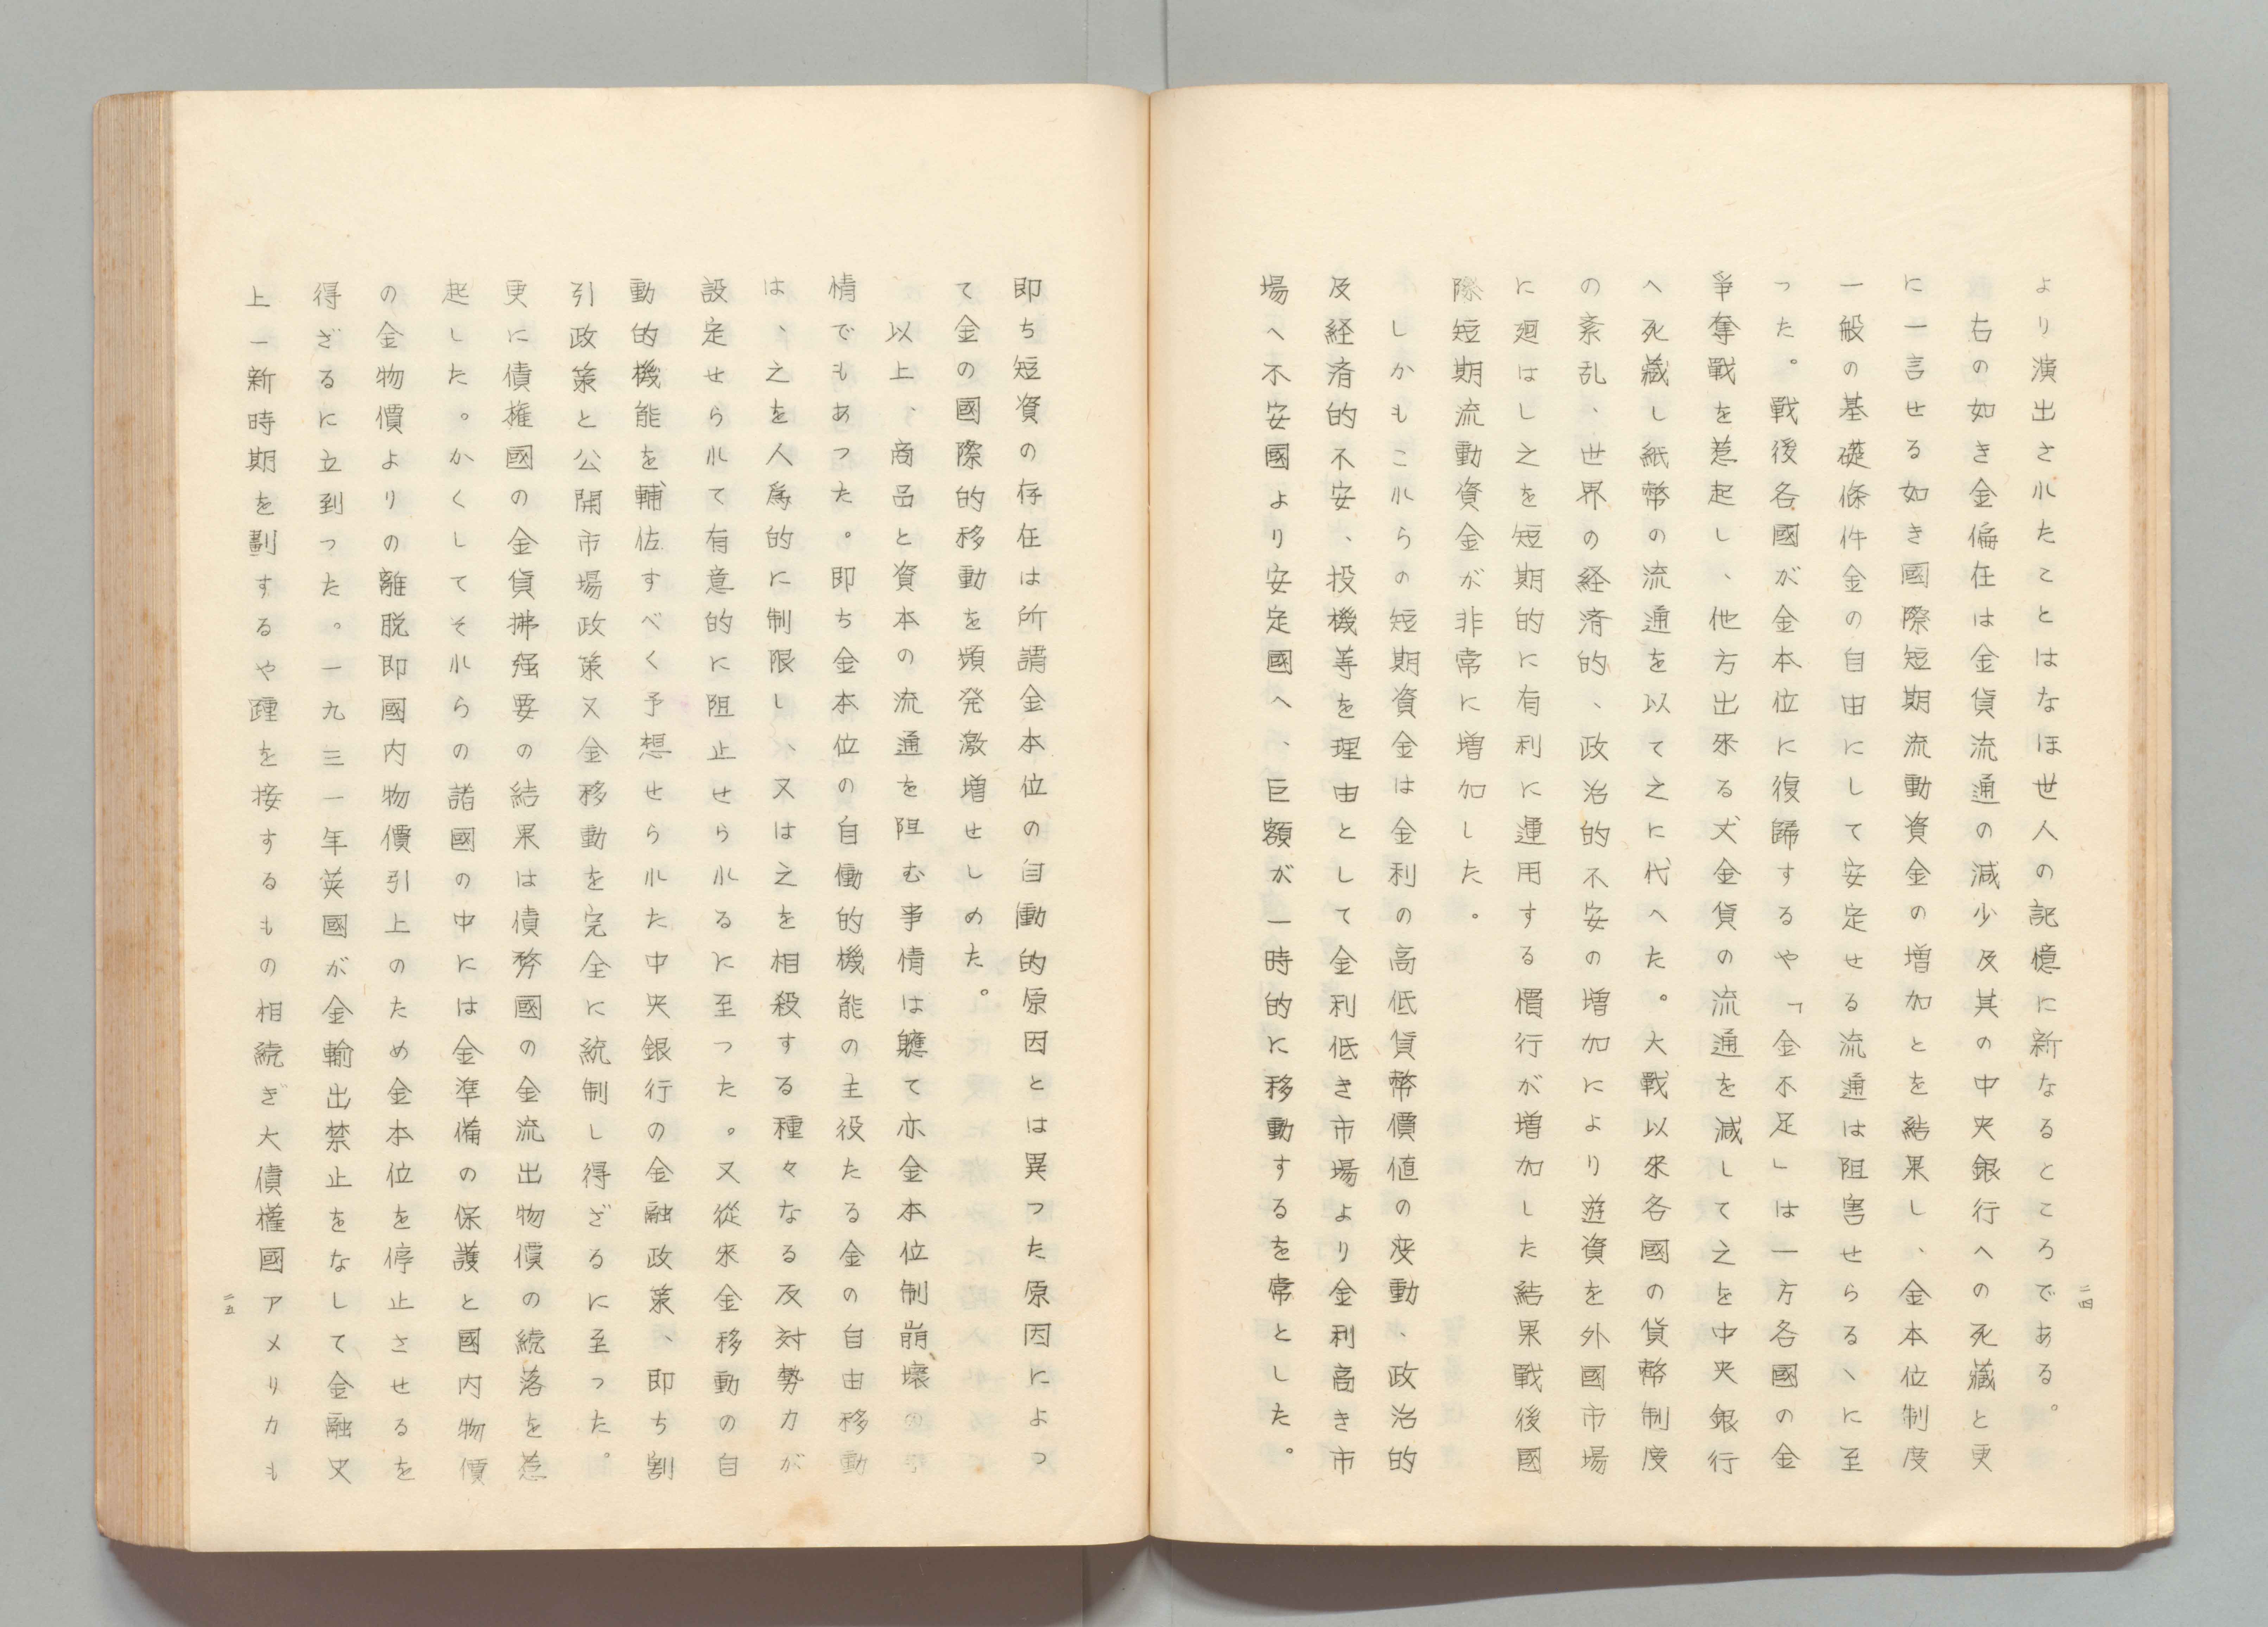 二四
より演出されたことはなほ世人の記憶に新なるところである。
右の如き金偏在は金貨流通の減少及其の中央銀行への死藏と更
に一言せる如き國際短期流動資金の増加とを結果し、金本位制度
一般の基礎條件金の自由にして安定せる流通は阻害せらるヽに至
つた。戰後各國が金本位に復歸するや「金不足」は一方各國の金
爭奪戰を惹起し、他方出來る丈金貨の流通を減して之を中央銀行
へ死藏し紙幣の流通を以て之に代へた。大戰以來各國の貨幣制度
の紊乱、世界の経済的、政治的不安の増加により遊資を外國市場
に廻はし之を短期的に有利に運用する慣行が増加した結果戰後國
際短期流動資金が非常に増加した。
しかもこれらの短期資金は金利の高低貨幣價値の変動、政治的
及経済的不安、投機等を理由として金利低き市場より金利高き市
場へ不安國より安定國へ、巨額が一時的に移動するを常とした。
即ち短資の存在は所謂金本位の自働的原因とは異つた原因によつ
て金の國際的移動を頻発激増せしめた。
以上、商品と資本の流通を阻む事情は軈て亦金本位制崩壞の事
情でもあつた。即ち金本位の自働的機能の主役たる金の自由移動
は、之を人爲的に制限し、又は之を相殺する種々なる反対勢力が
設定せられて有意的に阻止せられるに至つた。又從來金移動の自
動的機能を輔佐すべく予想せられた中央銀行の金融政策、即ち割
引政策と公開市場政策又金移動を完全に統制し得ざるに至つた。
更に債権國の金貨拂强要の結果は債務國の金流出物價の続落を惹
起した。かくしてそれらの諸國の中には金準備の保護と國内物價
の金物價よりの離脱即國内物價引上のため金本位を停止させるを
得ざるに立到つた。一九三一年英國が金輸出禁止をなして金融史
上一新時期を劃するや踵を接するもの相続ぎ大債權國アメリカも
二五